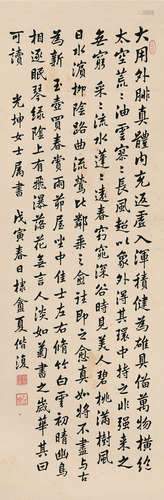 大用外腓真體內充返虛入渾積健為雄具備萬物橫絕
太空荒荒油雲寥寥長風超以象外得其環中持之非強來之
無窮采采流水蓬蓬遠春窈窕深谷時見美人碧桃滿樹風
日水濱柳陰路曲流鶯比鄰乘之愈往識之愈真如將不盡與古
為新玉壺買春賞雨茆屋坐中佳士左右脩竹白雲初晴幽鳥
相逐眠琴綠陰上有飛瀑落花無言人淡如菊書之歲華其曰
可讀
光坤女士属書戊寅春日棣盦夏偕復